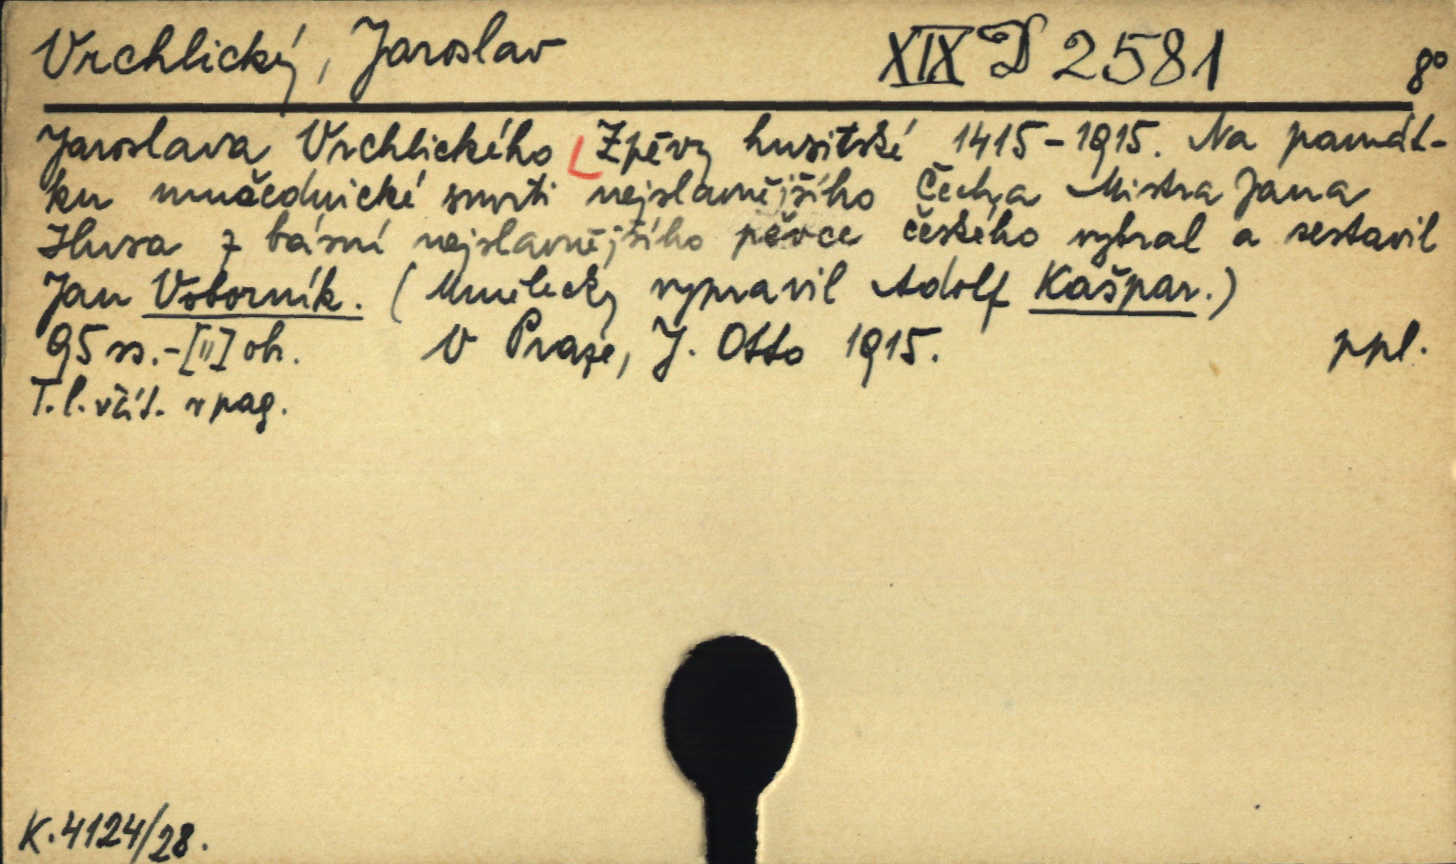 Vrchlický, Jaroslav XIX D 2581 8°
Jaroslava Vrchlického Zpěvy husitské 1415-1915. Na památ-
ku mučednické smrti nejslavnějšího Čecha Mistra Jana
Husa z básní nejslavnějšího pěvce českého vybral a sestavil
Jan Voborník. (Umělecky vypravil Adolf Kašpar.)
95 ss.-[II] ob. V Praze, J. Otto 1915. ppl.
T. l. včít. v pag.
K. 4124/28.